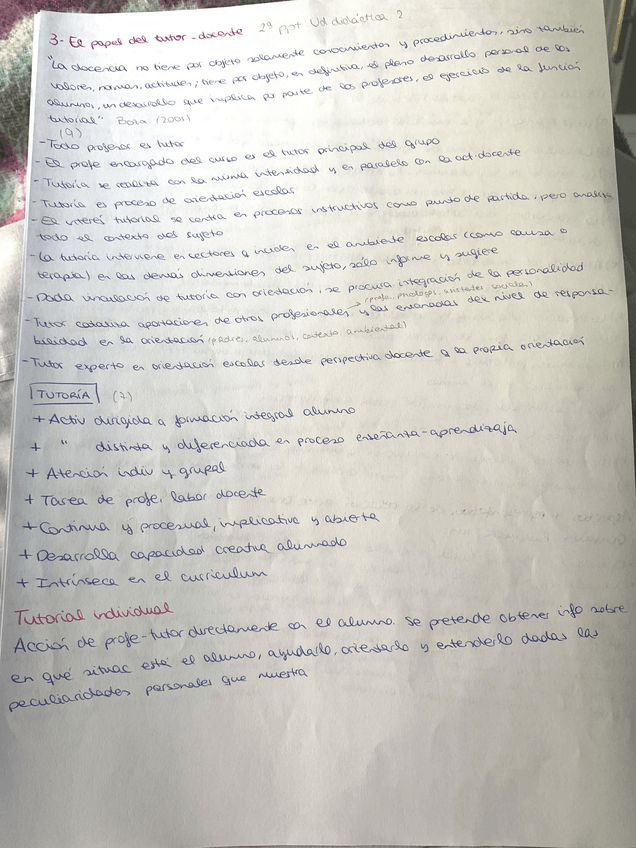 3- El papel del tutor-docente 2º ppt Ud didáctica 2
"La docencia no tiene por objeto solamente conocimientos y procedimientos, sino también
valores, normas, actitudes; tiene por objeto, en definitiva, el pleno desarrollo personal de los
alumnos, un desarrollo que implica por parte de los profesores, el ejercicio de la función
tutorial" Boza (2001)
(9)
- Todo profesor es tutor
- El profe encargado del curso es el tutor principal del grupo
- Tutoría se realiza con la misma intensidad y en paralelo con la act. docente
- Tutoría es proceso de orientación escolar
- El interés tutorial se centra en procesos instructivos como punto de partida, pero analiza
todo el contexto del sujeto
- La tutoría interviene en sectores q inciden en el ambiente escolar (como causa o
terapia) en las demás dimensiones del sujeto, sólo informe y sugiere
- Dada vinculación de tutoría con orientación, se procura integración de la personalidad
- Tutor cataliza aportaciones de otros profesionales y las emanadas del nivel de responsa-
(profes, psicólogos, asistentes sociales)
bilidad en la orientación (padres, alumnos, contexto ambiental)
- Tutor experto en orientación escolar desde perspectiva docente a la propia orientación
TUTORÍA (7)
+ Activ dirigida a formación integral alumno
+ " distinta y diferenciada en proceso enseñanza-aprendizaje
+ Atención indiv y grupal
+ Tarea de profe, labor docente
+ Continua y procesual, implicativa y abierta
+ Desarrolla capacidad creativa alumnado
+ Intrínseca en el curriculum
Tutorial individual
Acción de profe-tutor directamente con el alumno. Se pretende obtener info sobre
en qué situac está el alumno, ayudarlo, orientarlo y entenderlo dadas las
peculiaridades personales que muestra